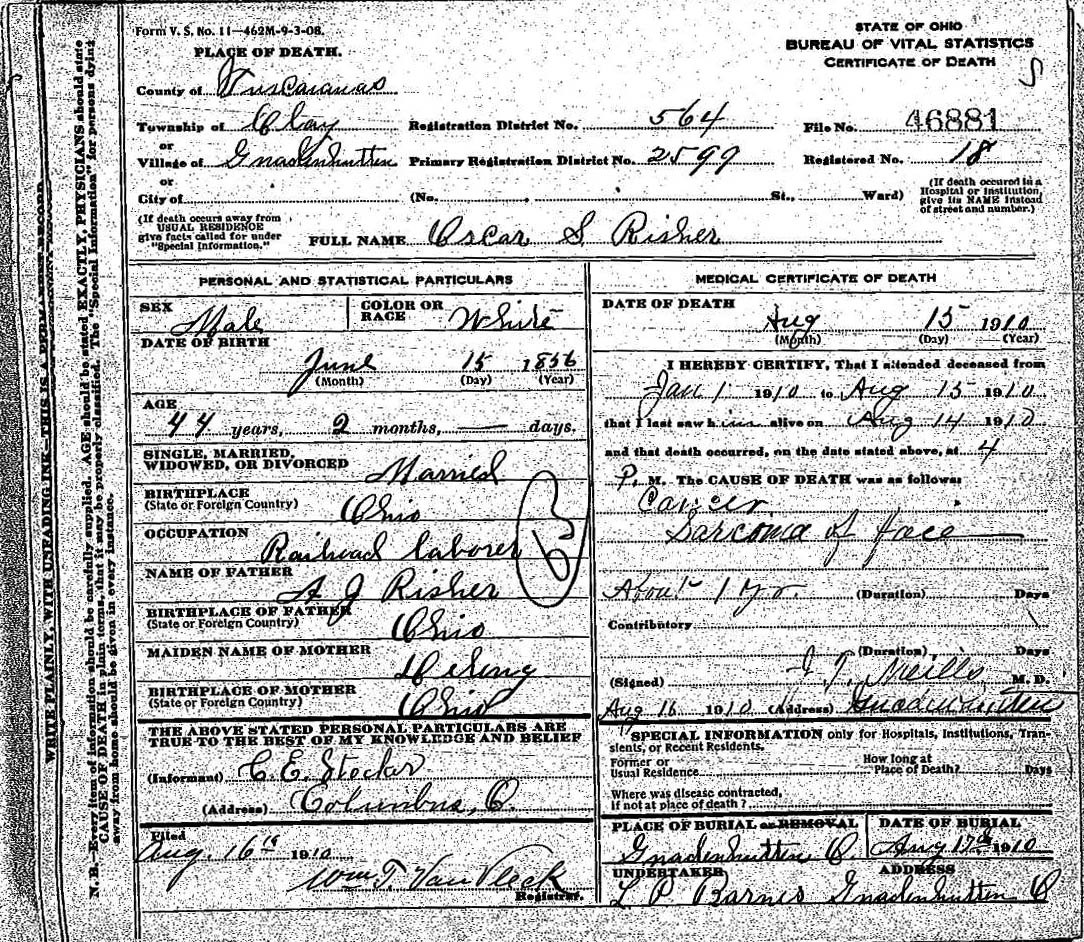 Form V. S. No. 11—462M-9-3-08.
STATE OF OHIO
BUREAU OF VITAL STATISTICS
CERTIFICATE OF DEATH
PLACE OF DEATH.
County of Tuscarawas
Township of Clay Registration District No. 564 File No. 46881
or
Village of Gnadenhutten Primary Registration District No. 2599 Registered No. 18
or
City of (No. St., Ward) (If death occured in a Hospital or Institution, give its NAME instead of street and number.)
(If death occurs away from USUAL RESIDENCE give facts called for under "Special Information.")
FULL NAME Oscar S Risher
PERSONAL AND STATISTICAL PARTICULARS
SEX Male COLOR OR RACE White
DATE OF BIRTH
June 15 1856
(Month) (Day) (Year)
AGE
44 years, 2 months, — days.
SINGLE, MARRIED, WIDOWED, OR DIVORCED Married
BIRTHPLACE
(State or Foreign Country) Ohio
OCCUPATION Railroad laborer
63
NAME OF FATHER A J Risher
BIRTHPLACE OF FATHER
(State or Foreign Country) Ohio
MAIDEN NAME OF MOTHER
BIRTHPLACE OF MOTHER
(State or Foreign Country) Ohio
THE ABOVE STATED PERSONAL PARTICULARS ARE
TRUE TO THE BEST OF MY KNOWLEDGE AND BELIEF
(Informant) C. E. Stocker
(Address) Columbus, O.
Filed
Aug. 16th 1910
Wm T. Van Vleck
Registrar.
MEDICAL CERTIFICATE OF DEATH
DATE OF DEATH
Aug 15 1910
(Month) (Day) (Year)
I HEREBY CERTIFY, That I attended deceased from
Jan 1 1910 to Aug 15 1910
that I last saw him alive on Aug 14 1910
and that death occurred, on the date stated above, at 4
P. M. The CAUSE OF DEATH was as follows:
Cancer
Sarcoma of face
About 1 yr. (Duration) Days
Contributory
(Duration) Days
(Signed) M. D.
Aug 16 1910 (Address) Gnadenhutten
SPECIAL INFORMATION only for Hospitals, Institutions, Transients, or Recent Residents.
Former or Usual Residence How long at Place of Death? Days
Where was disease contracted,
If not at place of death?
PLACE OF BURIAL or REMOVAL DATE OF BURIAL
Gnadenhutten O. Aug 17th 1910
UNDERTAKER ADDRESS
L P Barnes Gnadenhutten O
WRITE PLAINLY, WITH UNFADING INK—THIS IS A PERMANENT RECORD
N. B.—Every item of information should be carefully supplied. AGE should be stated EXACTLY, PHYSICIANS should state
CAUSE OF DEATH in plain terms, that it may be properly classified. The "Special Information" for persons dying
away from home should be given in every instance.